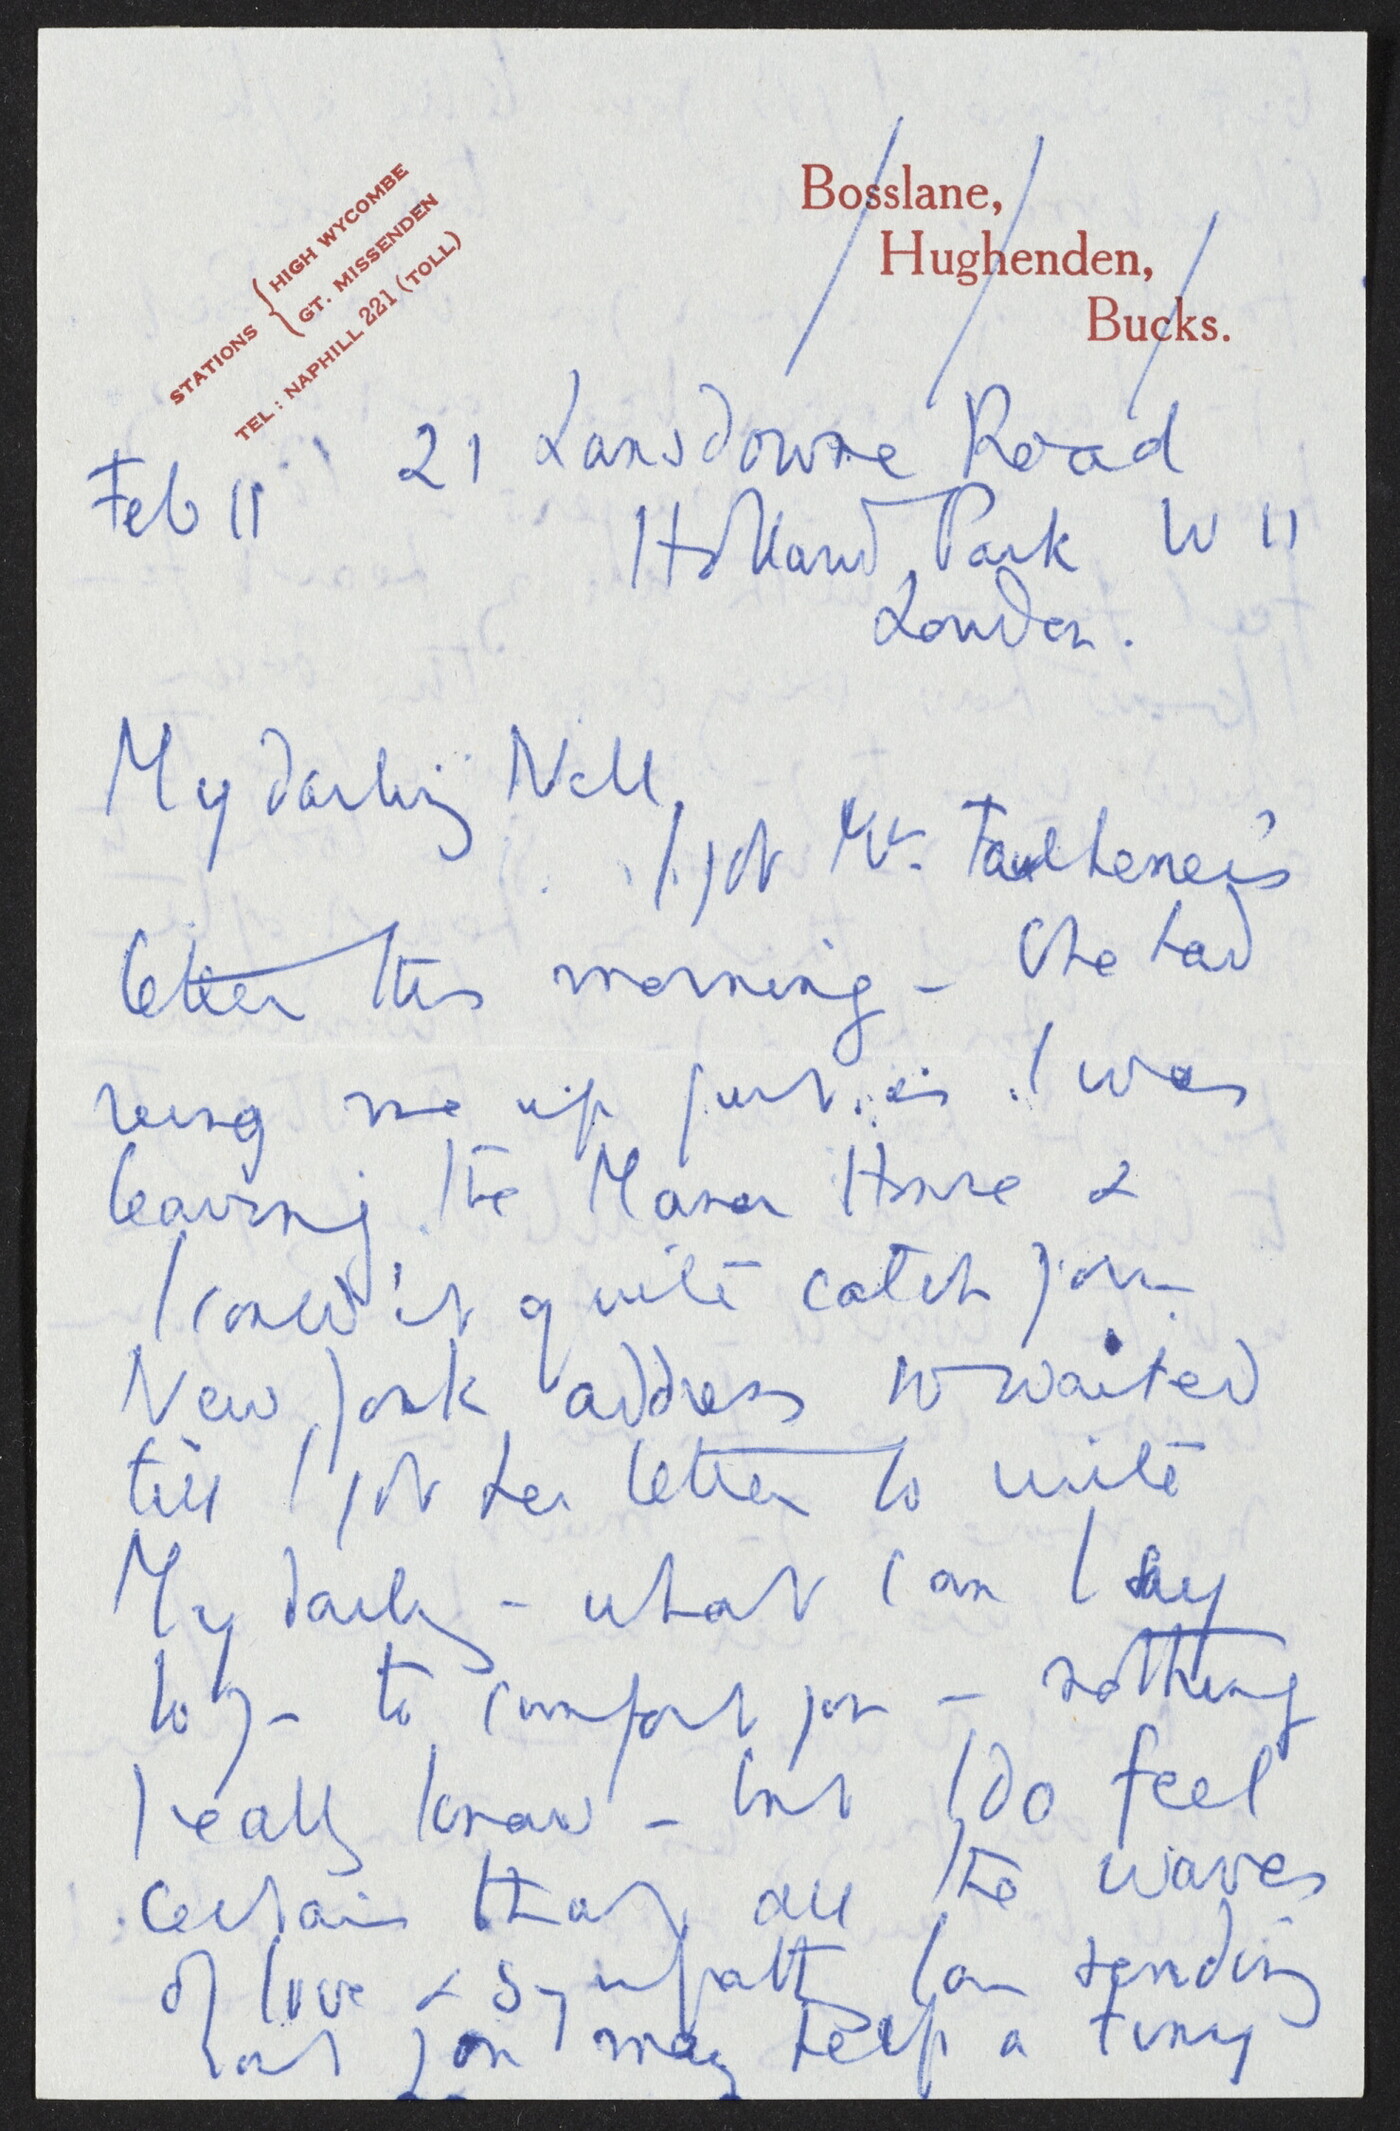 STATIONS { HIGH WYCOMBE
GT. MISSENDEN
TEL: NAPHILL 221 (TOLL)
Bosslane,
Hughenden,
Bucks.
Feb 11 21 Lansdowne Road
Holland Park W 11
London.
My darling Nell,
I got Mr. Faulkener's
letter this morning - She had
rung me up just as I was
leaving the Manor House &
I couldn't quite catch your
New York address so waited
till I got her letter to write
My darling - what can I say
to to comfort you - nothing
I really know - but I do feel
certain that all the waves
of love & sympathy I am sending
out you may help a tiny